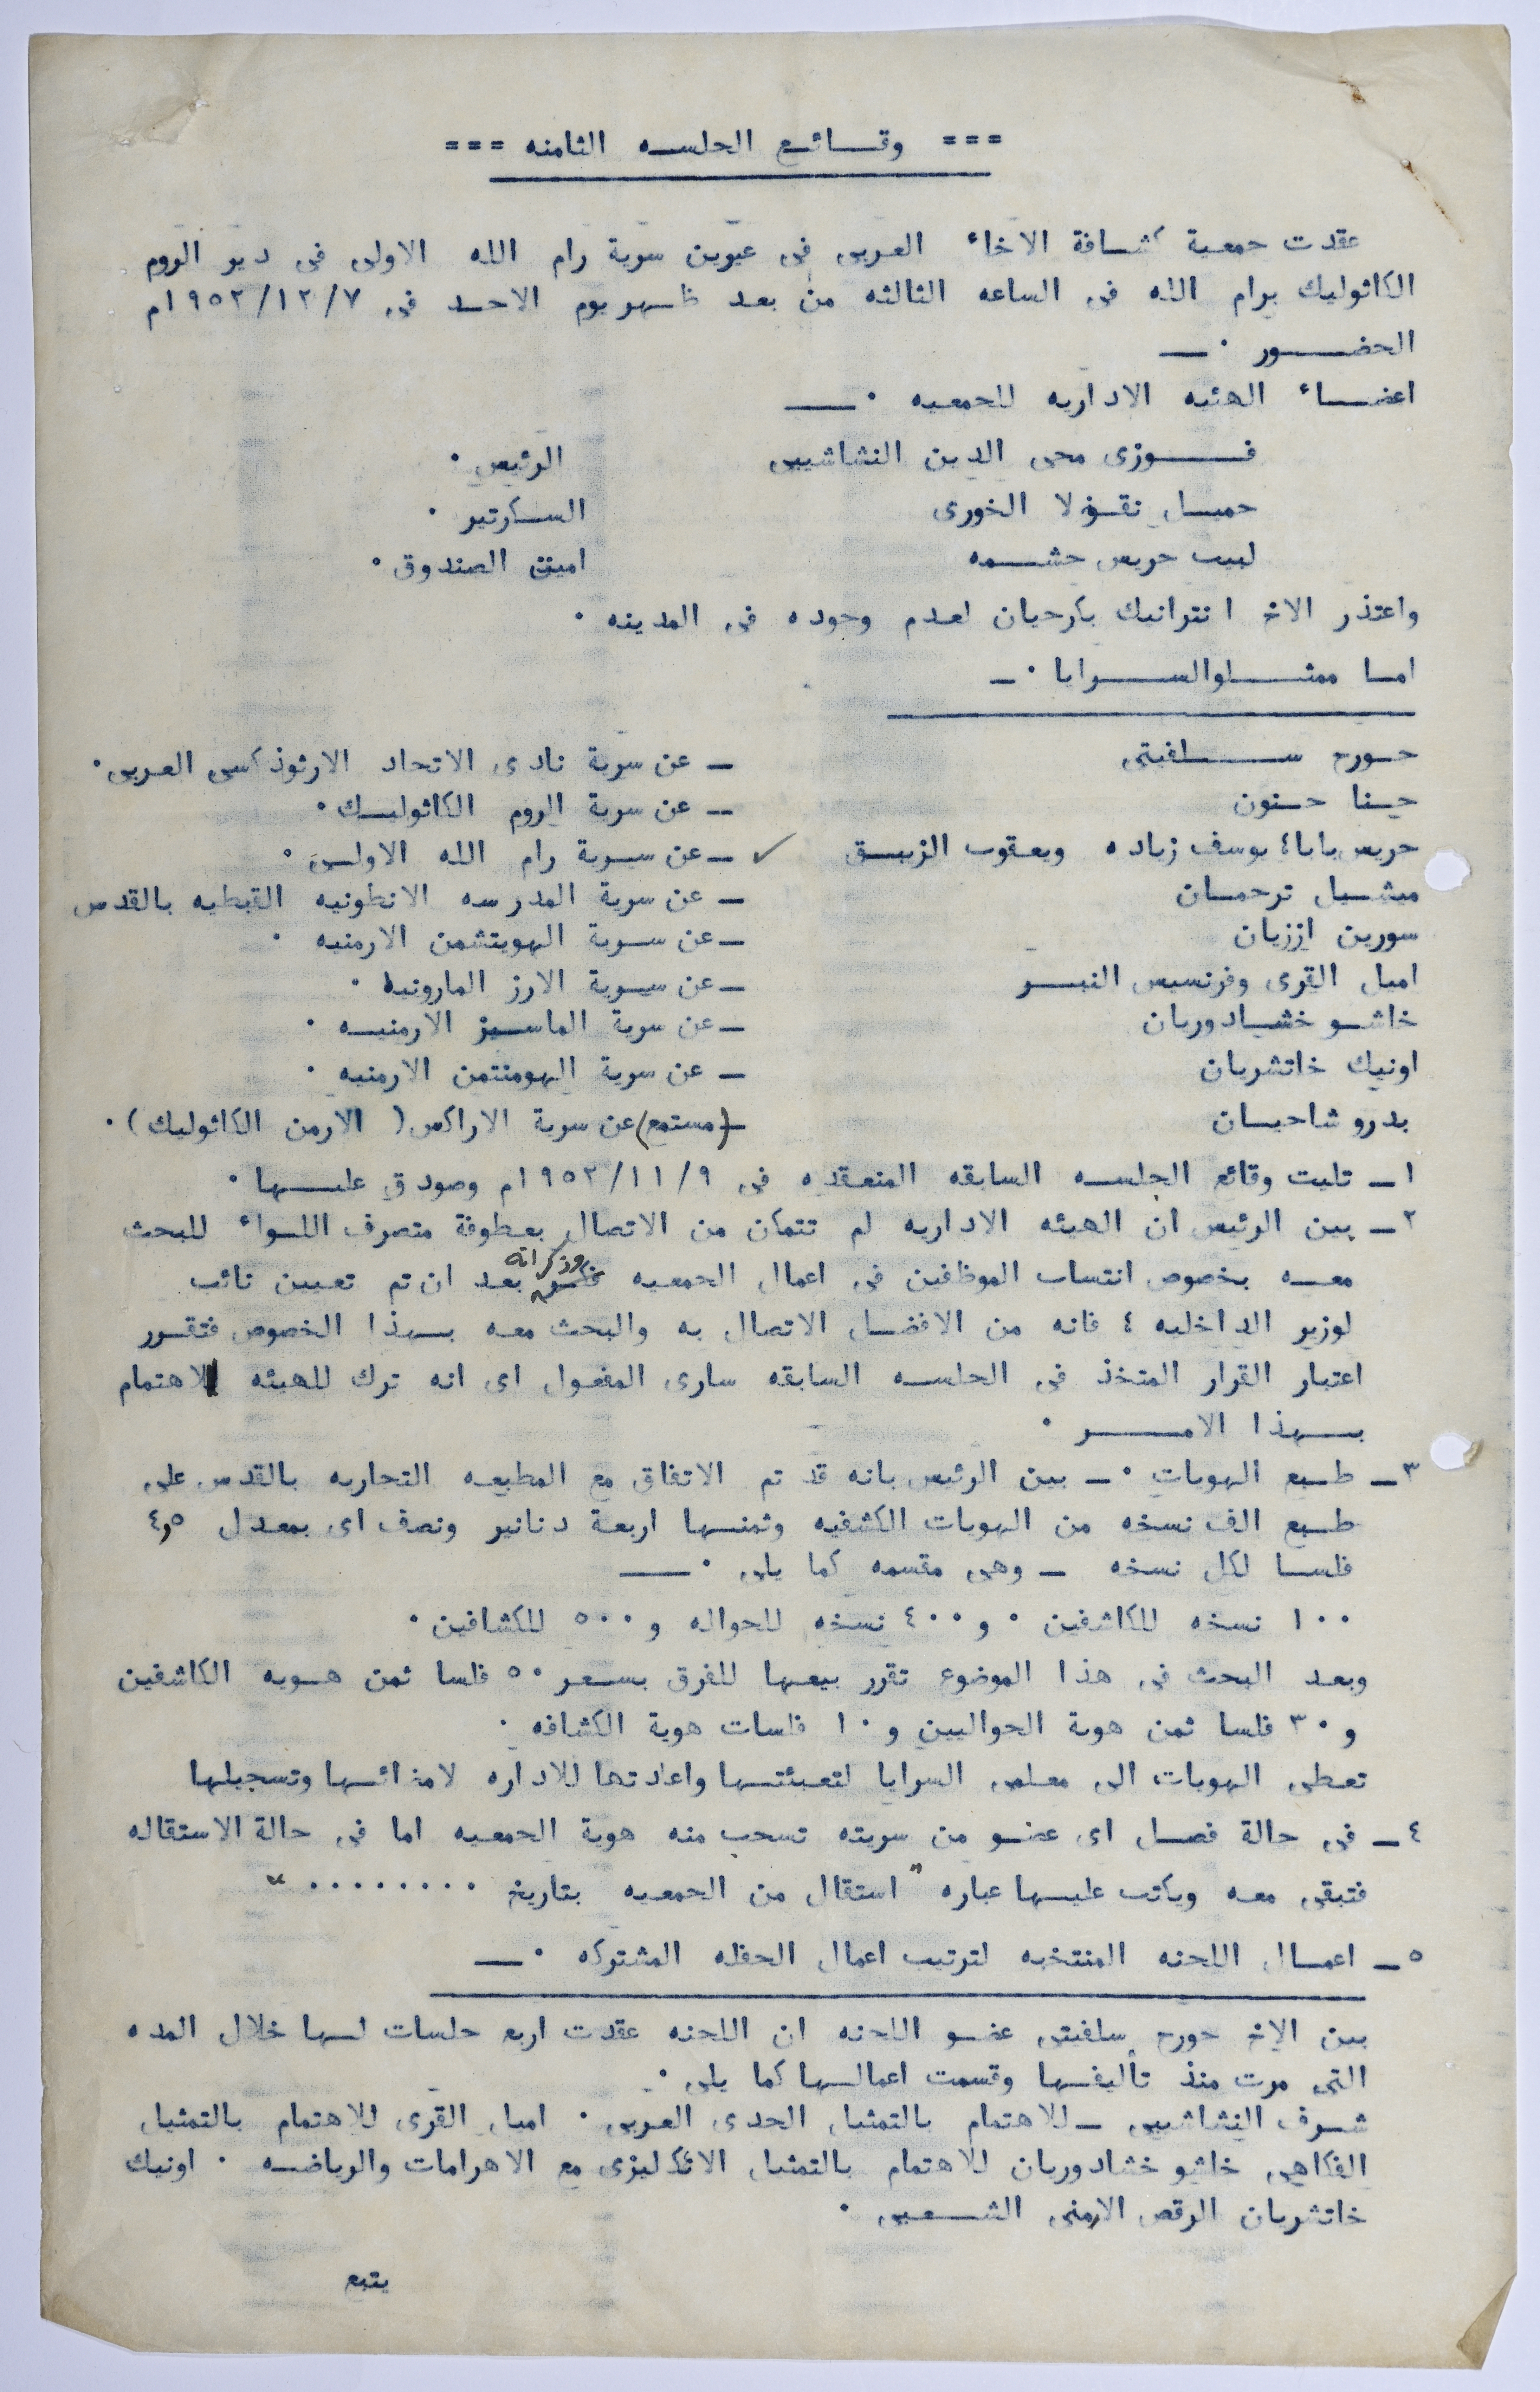 === وقائع الجلسه الثامنه ===
عقدت جمعية كشافة الاخاء العربى فى عرين سرية رام الله الاولى فى دير الروم
الكاثوليك برام الله فى الساعه الثالثه من بعد ظهر يوم الاحد فى ١٩٥٢/١٢/٧م
الحضور ٠ــ
اعضاء الهئيه الاداريه للجمعيه ٠ــ
فوزى محى الدين النشاشيبى الرئيس ٠
جميل نقولا الخورى السكرتير ٠
لبيب جريس حشمه امين الصندوق ٠
واعتذر الاخ انترانيك بكرجيان لعدم وجوده فى المدينه ٠
اما ممثلوالسرايا ٠ــ
جورج سلفيتى ــ عن سرية نادى الاتحاد الارثوذكسى العربى ٠
حنا حنون ــ عن سرية الروم الكاثوليك ٠
جريس بابا٤ يوسف زياده ويعقوب الزيبق ✓ ــ عن سرية رام الله الاولى ٠
ميشيل ترجمان ــ عن سرية المدرسه الانطونيه القبطيه بالقدس
سورين اززيان ــ عن سرية الهويتشمن الارمنيه ٠
اميل القرى وفرنسيس النبر ــ عن سرية الارز المارونيه ٠
خاشو خشادوريان ــ عن سرية الماسيز الارمنيه ٠
اونيك خاتشريان ــ عن سرية الهومنتمن الارمنيه ٠
بدرو شاحيان ــ (مستمع) عن سرية الاراكس ( الارمن الكاثوليك ) ٠
١ــ تليت وقائع الجلسه السابقه المنعقده فى ١٩٥٢/١١/٩م وصودق عليها ٠
٢ــ بين الرئيس ان الهيئه الاداريه لم تتمكن من الاتصال بعطوفة متصرف اللواء للبحث
معه بخصوص انتساب الموظفين فى اعمال الجمعيه وذكر انه بعد ان تم تعيين نائب
لوزير الداخليه ٤ فانه من الافضل الاتصال به والبحث معه بهذا الخصوص فتقرر
اعتبار القرار المتخذ فى الجلسه السابقه سارى المفعول اى انه ترك للهيئه الاهتمام
بهذا الامر ٠
٣ــ طبع الهويات ٠ــ بين الرئيس بانه قد تم الاتفاق مع المطبعه التجاريه بالقدس على
طبع الف نسخه من الهويات الكشفيه وثمنها اربعة دنانير ونصف اى بمعدل ٤٫٥
فلسا لكل نسخه ــ وهى مقسمه كما يلى ٠ــ
١٠٠ نسخه للكاشفين ٠ و ٤٠٠ نسخه للجواله و ٥٠٠ للكشافين ٠
وبعد البحث فى هذا الموضوع تقرر بيعها للفرق بسعر ٥٠ فلسا ثمن هويه الكاشفين
و ٣٠ فلسا ثمن هوية الجوالين و ١٠ فلسات هوية الكشافه ٠
تعطى الهويات الى معلمى السرايا لتعبئتها واعادتها للاداره لامضائها وتسجيلها
٤ــ فى حالة فصل اى عضو من سريته تسحب منه هوية الجمعيه اما فى حالة الاستقاله
فتبقى معه ويكتب عليها عباره " استقال من الجمعيه بتاريخ ٠٠٠٠٠٠٠٠ "
٥ــ اعمال اللجنه المنتخبه لترتيب اعمال الحفله المشتركه ٠ــ
بين الاخ جورج سلفيتى عضو اللجنه ان اللجنه عقدت اربع جلسات لها خلال المده
التى مرت منذ تأليفها وقسمت اعمالها كما يلى ٠ــ
شرف النشاشيبى ــ للاهتمام بالتمثيل الجدى العربى ٠ اميل القرى للاهتمام بالتمثيل
الفكاهى خاشو خشادوريان للاهتمام بالتمثيل الانكليزى مع الاهرامات والرياضه ٠ اونيك
خاتشريان الرقص الارمنى الشعبى ٠
يتبع